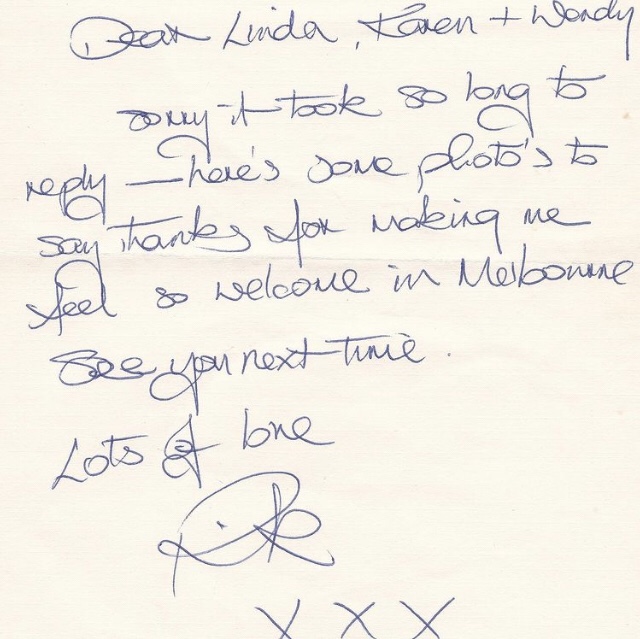 Dear Linda, Karen + Wendy
sorry it took so long to
reply — here's some photo's to
say thanks for making me
feel so welcome in Melbourne
See you next time.
Lots of love
X X X